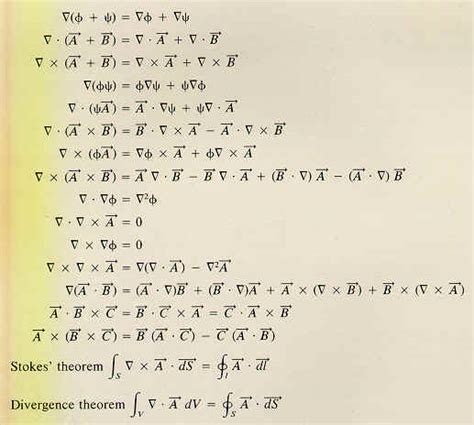 ∇(ϕ + ψ) = ∇ϕ + ∇ψ
∇ · (A⃗ + B⃗) = ∇ · A⃗ + ∇ · B⃗
∇ × (A⃗ + B⃗) = ∇ × A⃗ + ∇ × B⃗
∇(ϕψ) = ϕ∇ψ + ψ∇ϕ
∇ · (ψA⃗) = A⃗ · ∇ψ + ψ∇ · A⃗
∇ · (A⃗ × B⃗) = B⃗ · ∇ × A⃗ − A⃗ · ∇ × B⃗
∇ × (ϕA⃗) = ∇ϕ × A⃗ + ϕ∇ × A⃗
∇ × (A⃗ × B⃗) = A⃗ ∇ · B⃗ − B⃗ ∇ · A⃗ + (B⃗ · ∇) A⃗ − (A⃗ · ∇) B⃗
∇ · ∇ϕ = ∇²ϕ
∇ · ∇ × A⃗ = 0
∇ × ∇ϕ = 0
∇ × ∇ × A⃗ = ∇(∇ · A⃗) − ∇²A⃗
∇(A⃗ · B⃗) = (A⃗ · ∇)B⃗ + (B⃗ · ∇)A⃗ + A⃗ × (∇ × B⃗) + B⃗ × (∇ × A⃗)
A⃗ · B⃗ × C⃗ = B⃗ · C⃗ × A⃗ = C⃗ · A⃗ × B⃗
A⃗ × (B⃗ × C⃗) = B⃗ (A⃗ · C⃗) − C⃗ (A⃗ · B⃗)
Stokes' theorem ∫_S ∇ × A⃗ · dS⃗ = ∮_l A⃗ · dl⃗
Divergence theorem ∫_V ∇ · A⃗ dV = ∮_S A⃗ · dS⃗